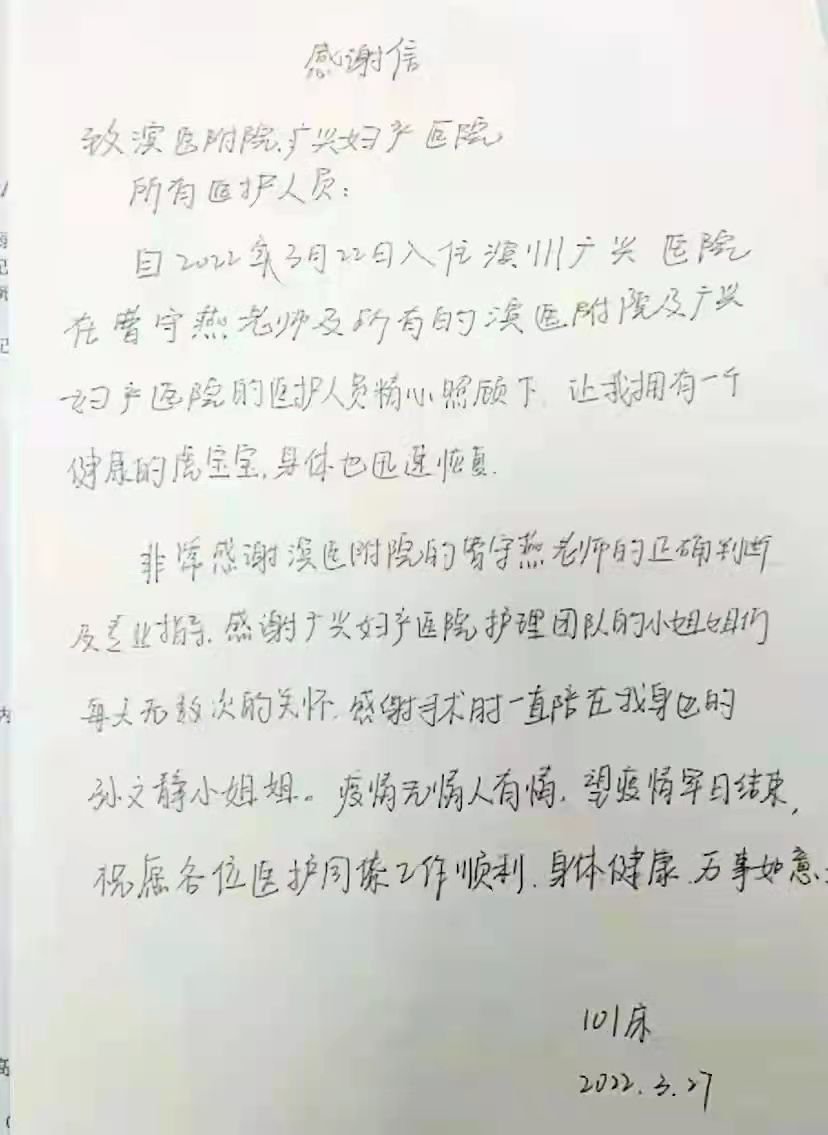 感谢信
致滨医附院、广兴妇产医院
所有医护人员:
自2022年3月22日入住滨州广兴医院
在曹守燕老师及所有的滨医附院及广兴
妇产医院的医护人员精心照顾下、让我拥有一个
健康的虎宝宝,身体也迅速恢复.
非常感谢滨医附院的曹守燕老师的正确判断
及专业指导、感谢广兴妇产医院护理团队的小姐姐们
每天无数次的关怀、感谢手术时一直陪在我身边的
孙文静小姐姐。疫情无情人有情、望疫情早日结束,
祝愿各位医护同僚工作顺利、身体健康、万事如意
101床
2022.3.27